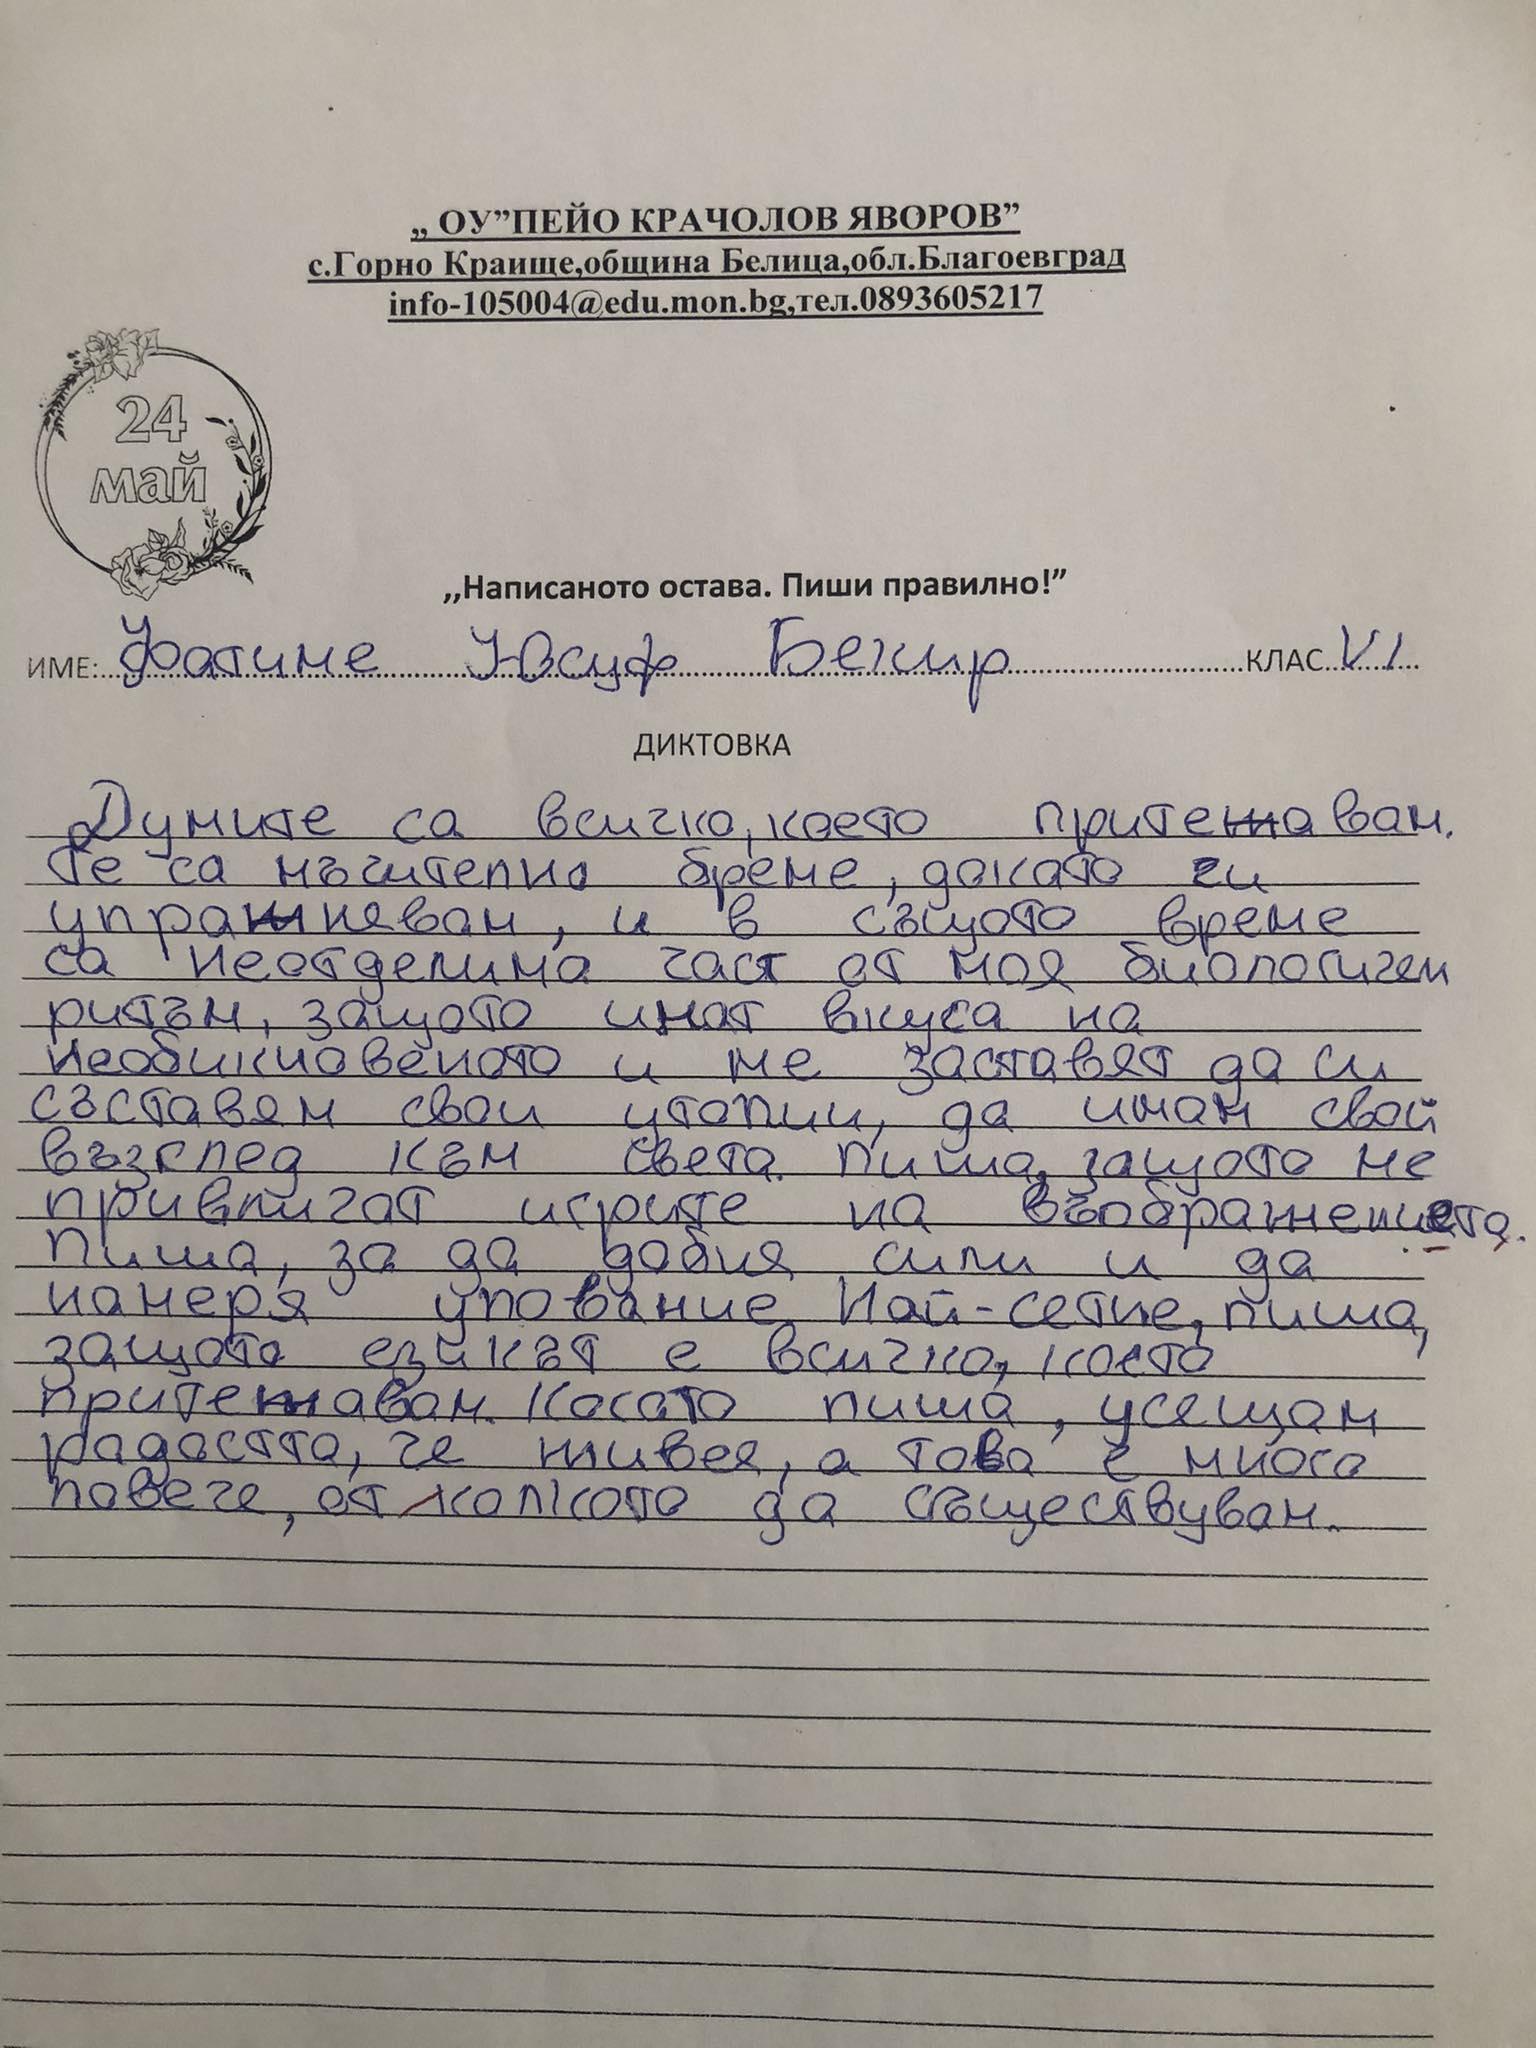 „ ОУ”ПЕЙО КРАЧОЛОВ ЯВОРОВ”
с.Горно Краище,община Белица,обл.Благоевград
info-105004@edu.mon.bg,тел.0893605217
24
май
,,Написаното остава. Пиши правилно!”
ИМЕ: Фатиме Юсуф Бекир КЛАС VI
ДИКТОВКА
Думите са всичко, което притежавам.
Те са мъчително бреме, докато ги
упражнявам, и в същото време
са неотделима част от моя биологичен
ритъм, защото имат вкуса на
необикновеното и ме заставят да си
съставям свои утопии, да имам свой
възглед към света. Пиша, защото ме
привличат игрите на въображението.
Пиша, за да добия сили и да
намеря упование. Най-сетне, пиша,
защото езикът е всичко, което
притежавам. Когато пиша, усещам
радостта, че живея, а това е много
повече, от колкото да съществувам.